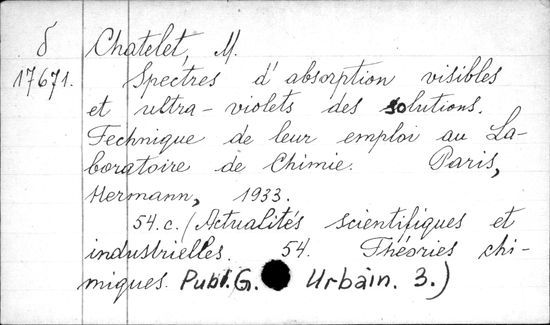 δ Chatelet, M.
17671. Spectres d'absorption visibles
et ultra-violets des solutions.
Technique de leur emploi au La-
boratoire de Chimie. Paris,
Hermann, 1933.
54.c. (Actualités scientifiques et
industrielles. 54. Théories chi-
miques. Publ. G. Urbain. 3.)